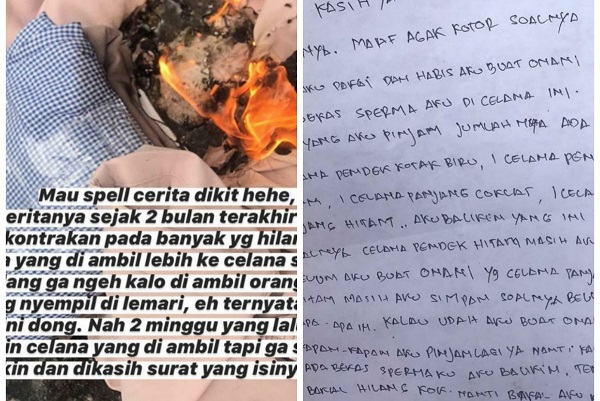 Mau spell cerita dikit hehe,
eritanya sejak 2 bulan terakhir
kontrakan pada banyak yg hilan
a yang di ambil lebih ke celana s
ang ga ngeh kalo di ambil orang
g nyempil di lemari, eh ternyata
ni dong. Nah 2 minggu yang lal
in celana yang di ambil tapi ga s
kin dan dikasih surat yang isiny
KASIH YA
NYA. MAAF AGAK KOTOR SOALNYA
AKU PAKAI DAN HABIS AKU BUAT ONANI
BEKAS SPERMA AKU DI CELANA INI.
YANG AKU PINJAM JUMLAHNYA ADA
ANA PENDEK KOTAK BIRU, 1 CELANA PEN
M, 1 CELANA PANJANG COKLAT, 1 CELA
JANG HITAM.. AKU BALIKIN YANG INI
ALNYA CELANA PENDEK HITAM MASIH AKU
LUM AKU BUAT ONANI YG CELANA PANJA
ITAM MASIH AKU SIMPAN SOALNYA BELU
APA-APAIN. KALAU UDAH AKU BUAT ONA
KAPAN-KAPAN AKU PINJAM LAGI YA NANTI KA
ADA BEKAS SPERMAKU AKU BALIKIN, TEN
BAKAL HILANG KOK. NANTI BAKAL AKU